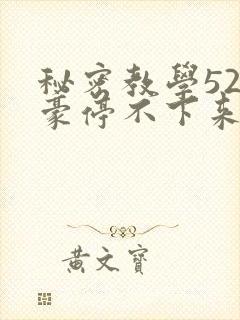 秘密教學52
豪停不下來
黃文寶